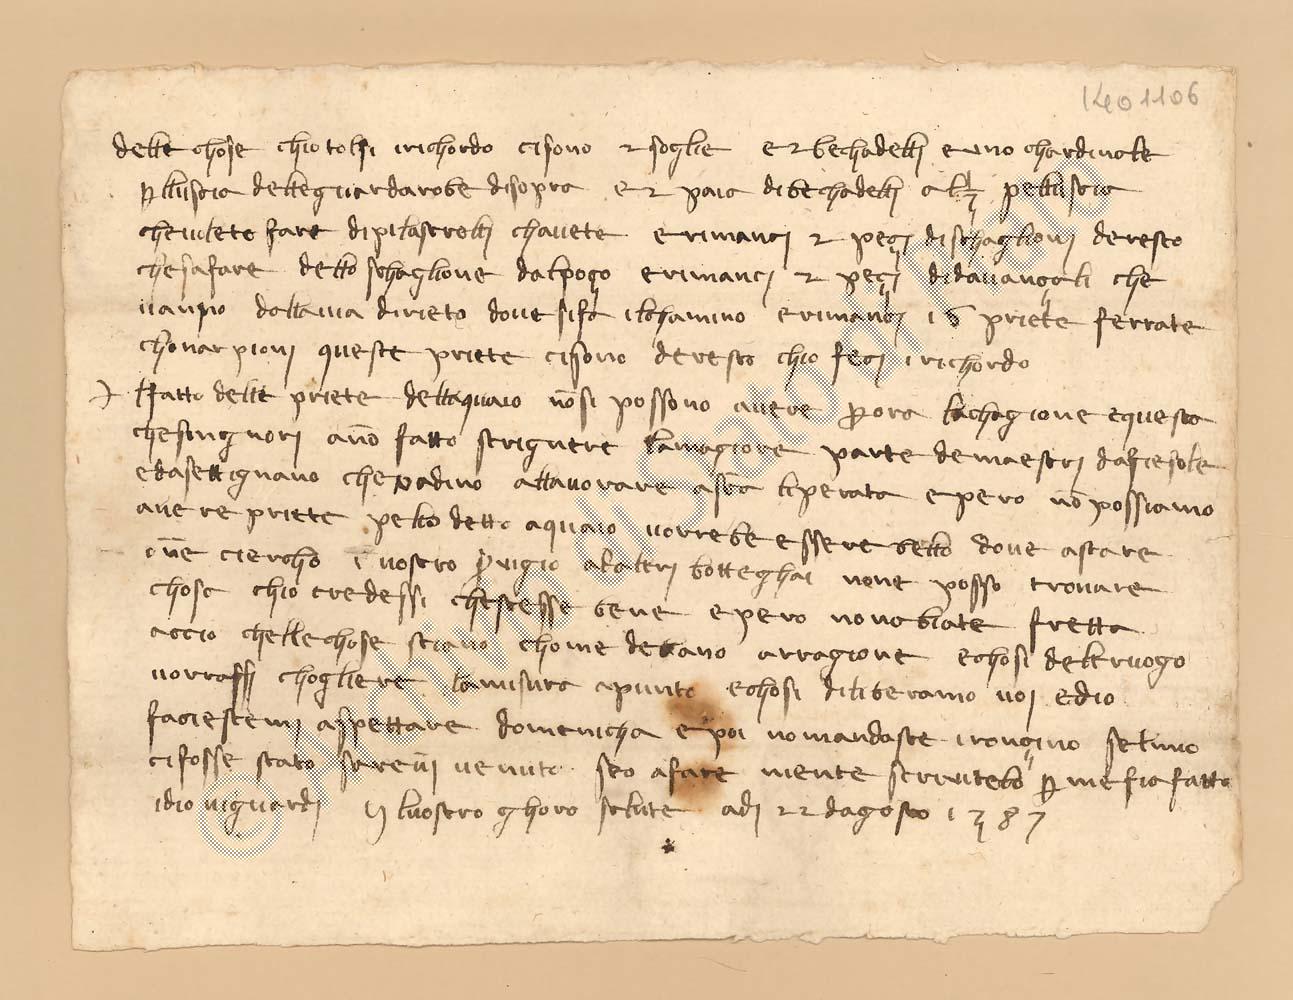 1401106
delle chose chio tolsi irichordo ci sono 2 soglie e 2 bechadelli e uno chardinale
p lluscio delle guardarobe di sopra e 2 paia di bechadelli pelluscio
che volete fare di pilastrelli chavete e rimanci 2 pezi di schaglioni de resto
che sa fare dello schaglione dal pozo e rimanci 2 pezi di davanzali che
vanno dalla via dirieto dove si fa ilchamino e rimanci 16 priete ferrate
chonarpioni queste priete ci sono de resto chio feci irichordo
Ffatto delle priete dellaquaio nosi possono avere p ora lachagione equesta
che singnori ano fatto strignere lamagiore parte de maestri dafiesole
e dasettignano che vadino allavorare asta liperata e pero no possiamo
avere priete pello detto aquaio vorrebe essere bello dove astare
one ciercho i nostro alaltri botteghai none posso trovare
chosa chio credessi chestesse bene e pero nonabiate fretta
accio chelle chose stiano chome debano arragione echosi dellruogo
vorrassi chogliere lamisura apunto echosi diliberamo noi edio
faciestemi aspettare domenicha e poi nomandaste se lino
ci fosse stato sareui venuto seo afare niente scrivitelo p me fia fatto
idio viguardi luostro ghoro salute adi 22 dagosto 1387